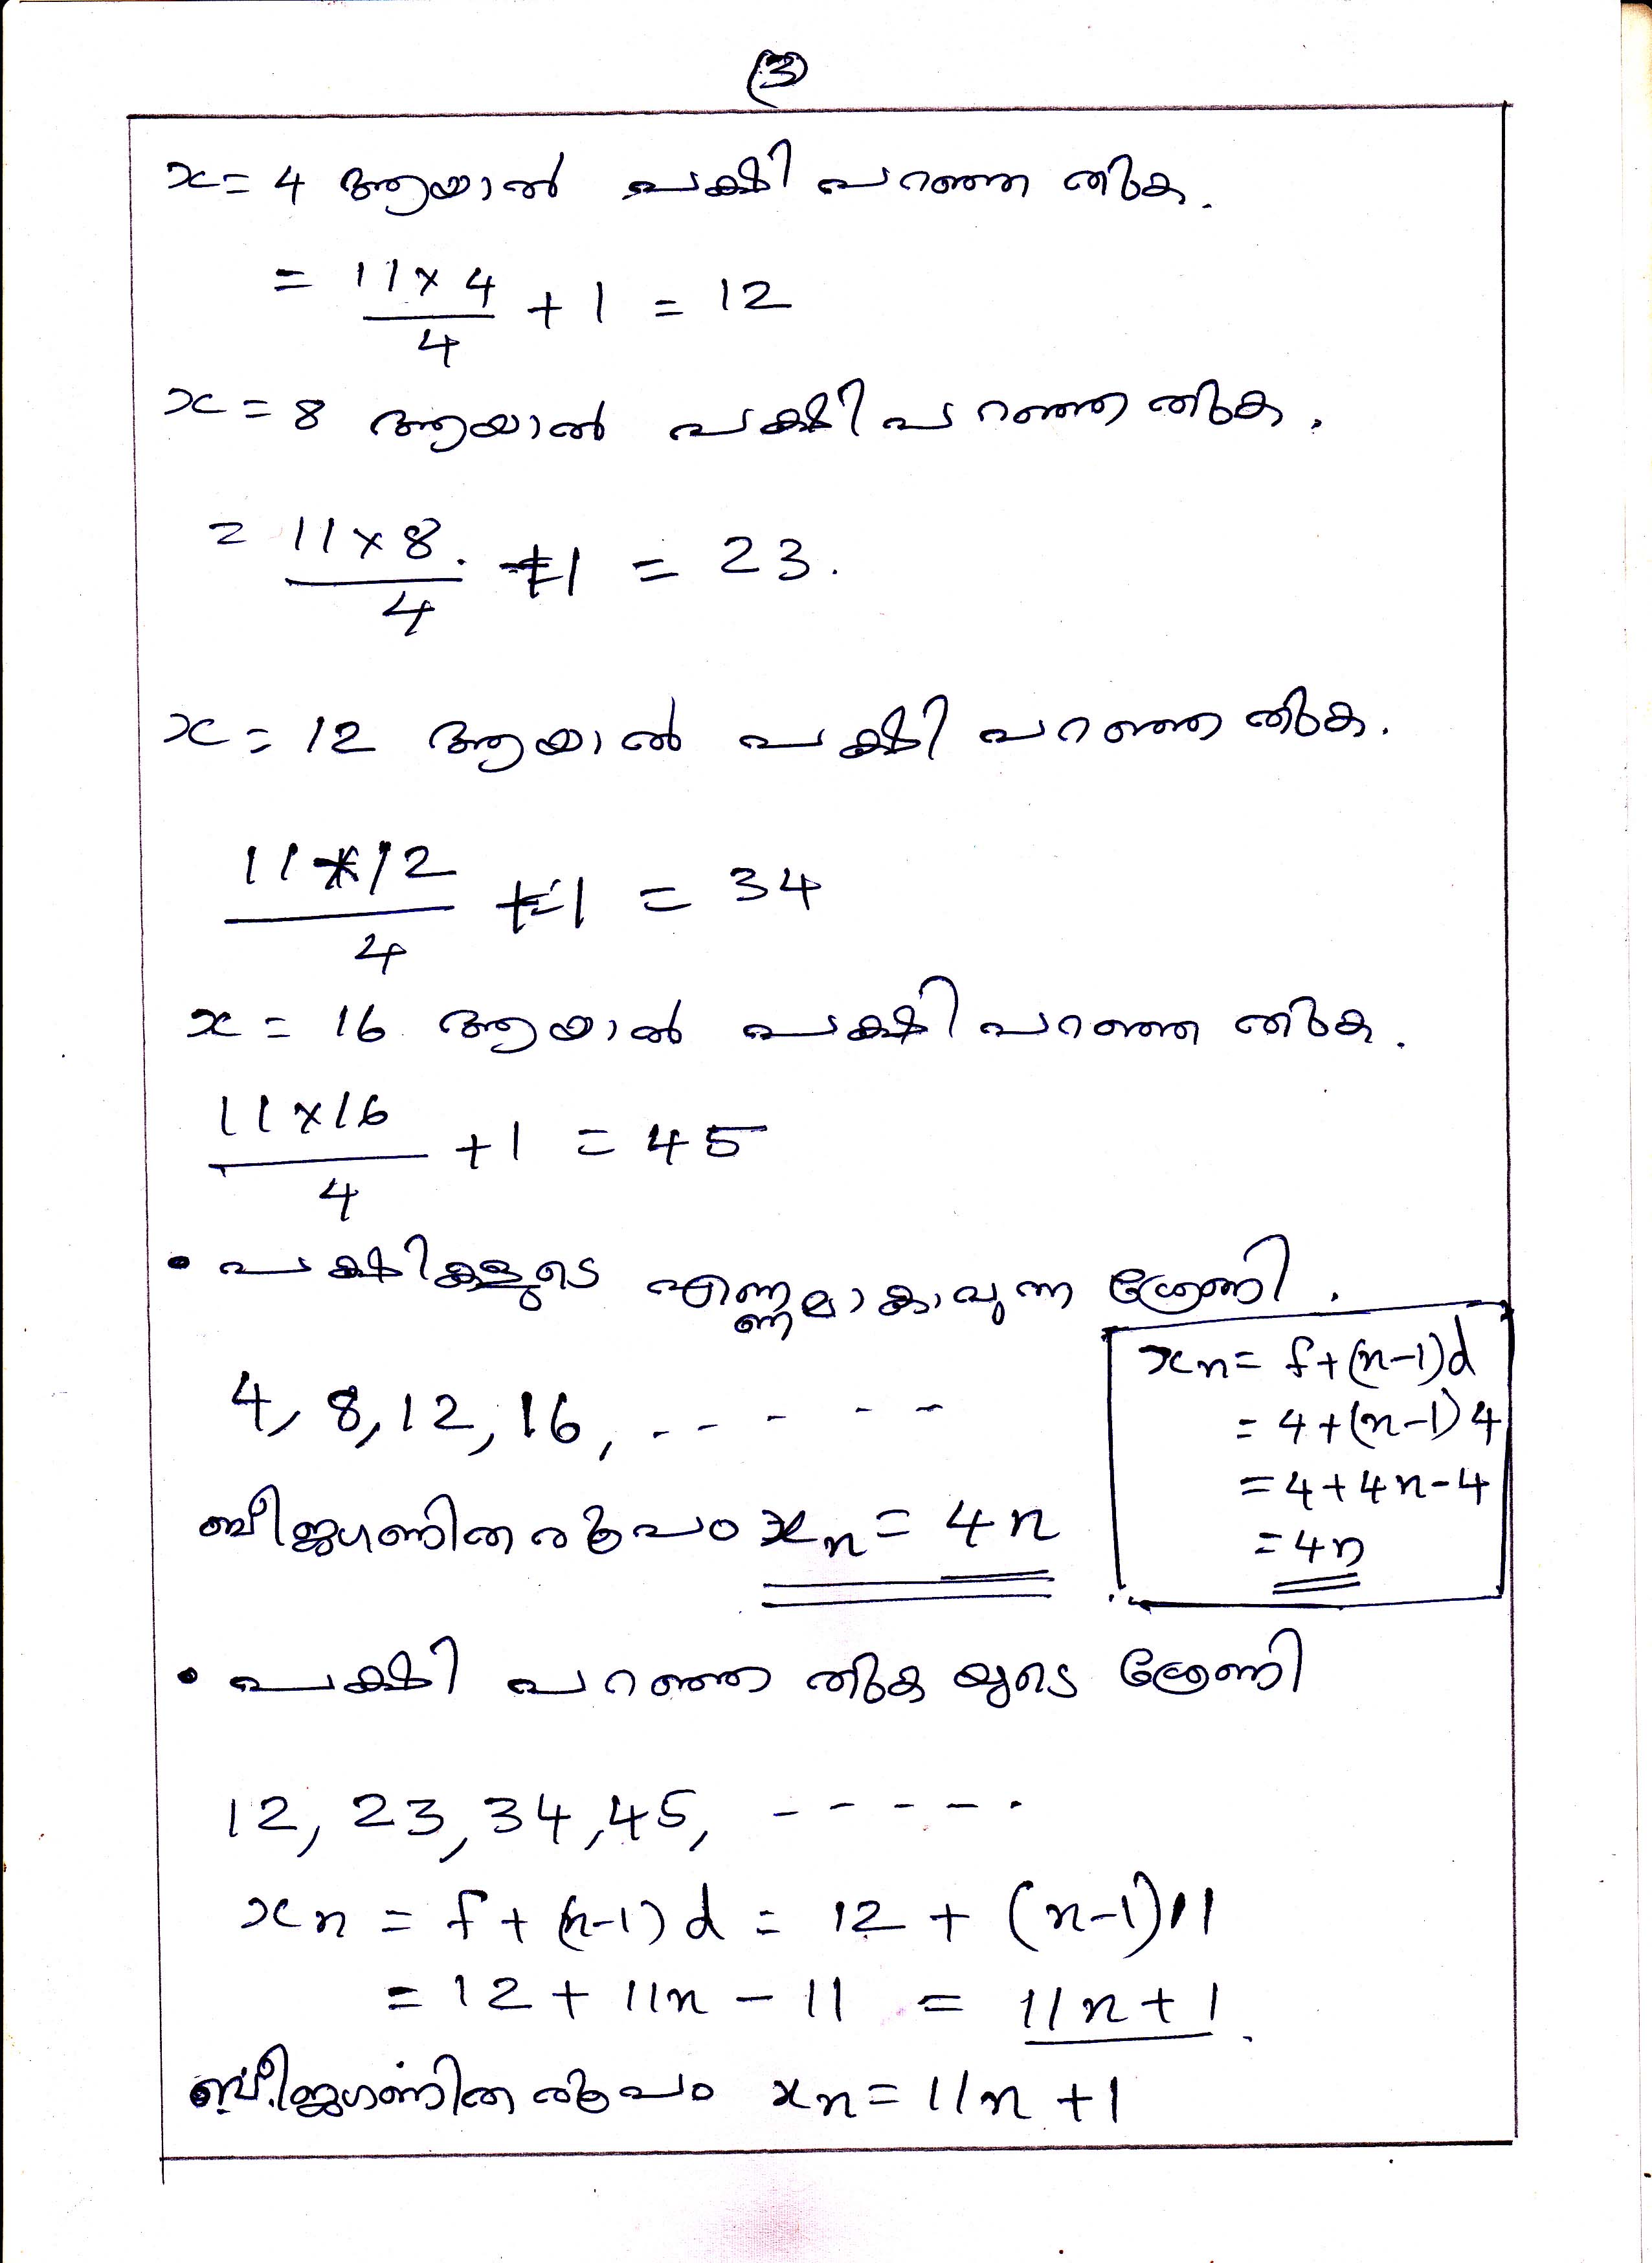 (3)
x = 4 ആയാൽ പക്ഷി പറഞ്ഞ തുക.
= 11 × 4 / 4 + 1 = 12
x = 8 ആയാൽ പക്ഷി പറഞ്ഞ തുക.
= 11 × 8 / 4 + 1 = 23.
x = 12 ആയാൽ പക്ഷി പറഞ്ഞ തുക.
11 × 12 / 4 + 1 = 34
x = 16 ആയാൽ പക്ഷി പറഞ്ഞ തുക.
11 × 16 / 4 + 1 = 45
• പക്ഷികളുടെ എണ്ണമാകാവുന്ന ശ്രേണി.
4, 8, 12, 16, - - - - -
ബീജഗണിത രൂപം xn = 4n
xn = f + (n-1)d
= 4 + (n-1)4
= 4 + 4n - 4
= 4n
• പക്ഷി പറഞ്ഞ തുക യുടെ ശ്രേണി
12, 23, 34, 45, - - - - - .
xn = f + (n-1) d = 12 + (n-1)11
= 12 + 11n - 11 = 11n + 1.
ബീജഗണിത രൂപം xn = 11n + 1